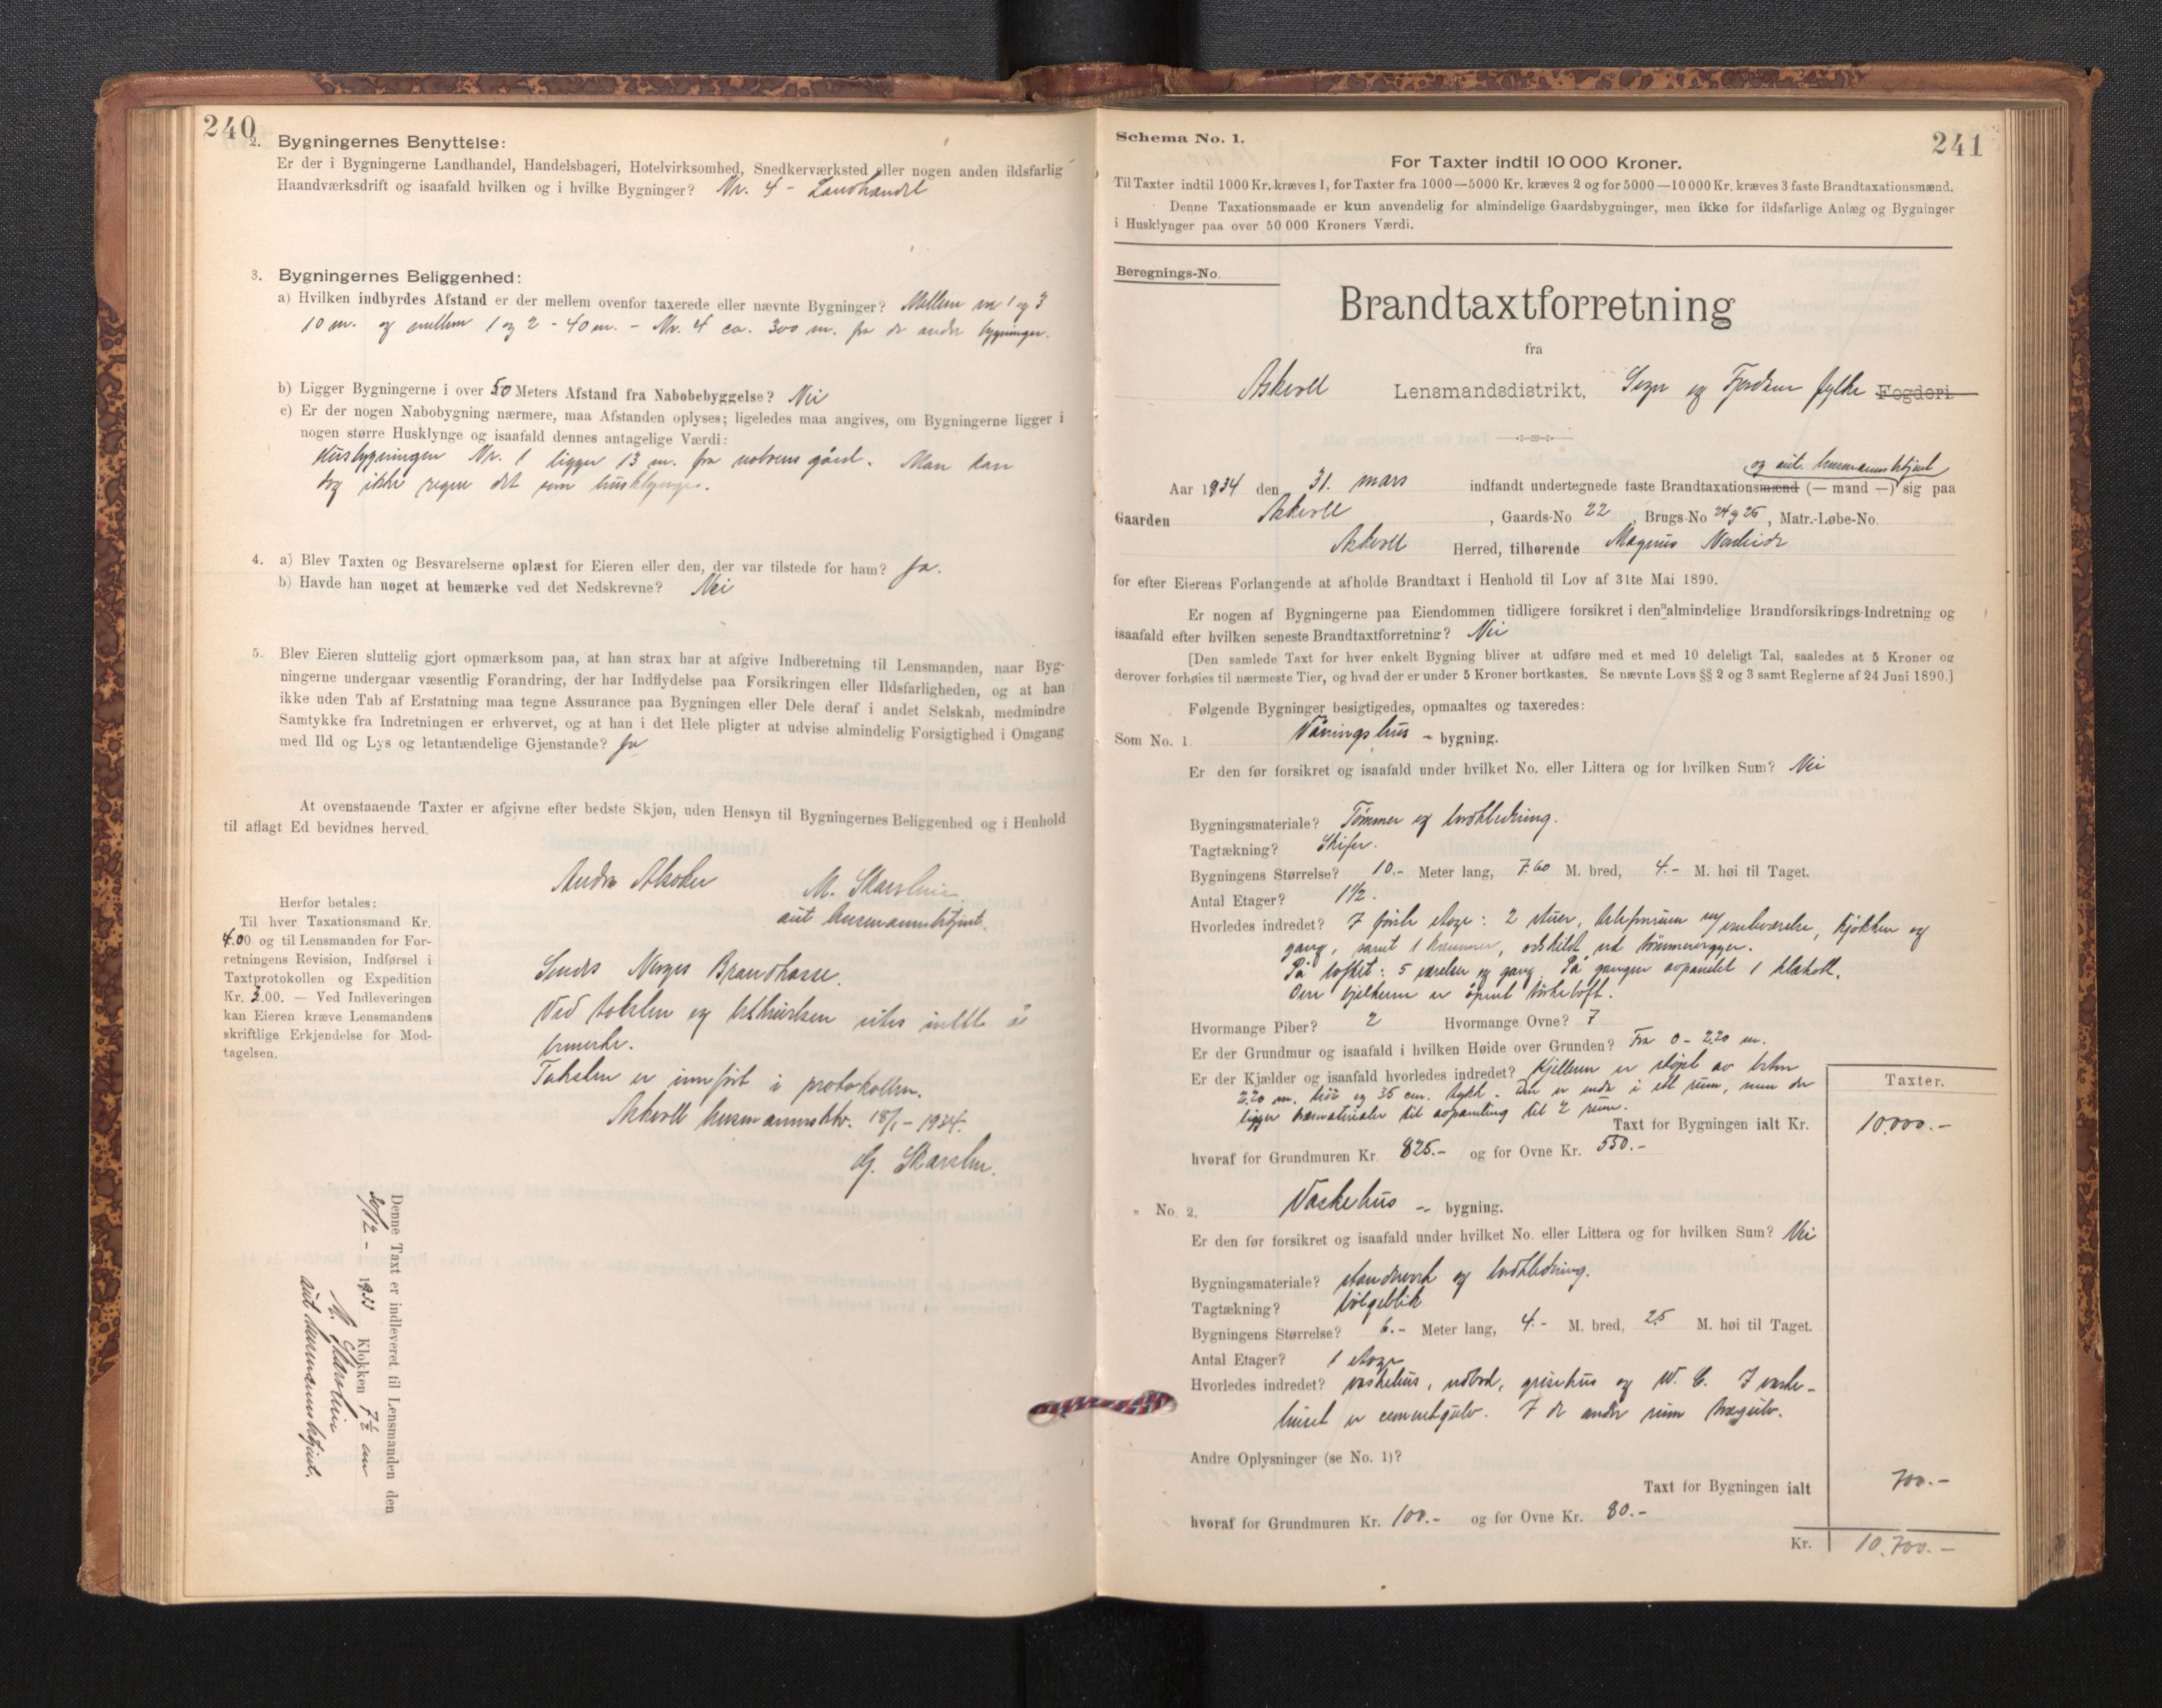 240
2. Bygningernes Benyttelse:
Er der i Bygningerne Landhandel, Handelsbageri, Hotelvirksomhed, Snedkerværksted eller nogen anden ildsfarlig
Haandværksdrift og isaafald hvilken og i hvilke Bygninger? Nr. 4 - Landhandel
3. Bygningernes Beliggenhed:
a) Hvilken indbyrdes Afstand er der mellem ovenfor taxerede eller nævnte Bygninger? Mellem nr 1 og 3
10 m. og mellem 1 og 2 - 40 m. - Nr. 4 ca. 300 m. fra de andre bygninger.
b) Ligger Bygningerne i over 50 Meters Afstand fra Nabobebyggelse? Nei
c) Er der nogen Nabobygning nærmere, maa Afstanden oplyses; ligeledes maa angives, om Bygningerne ligger i
nogen større Husklynge og isaafald dennes antagelige Værdi:
Husbygningen Nr. 1 ligger 13 m. fra naboens gård. Man kan
dog ikke regne det som husklynge.
4. a) Blev Taxten og Besvarelserne oplæst for Eieren eller den, der var tilstede for ham? Ja.
b) Havde han noget at bemærke ved det Nedskrevne? Nei
5. Blev Eieren sluttelig gjort opmærksom paa, at han strax har at afgive Indberetning til Lensmanden, naar Byg-
ningerne undergaar væsentlig Forandring, der har Indflydelse paa Forsikringen eller Ildsfarligheden, og at han
ikke uden Tab af Erstatning maa tegne Assurance paa Bygningen eller Dele deraf i andet Selskab, medmindre
Samtykke fra Indretningen er erhvervet, og at han i det Hele pligter at udvise almindelig Forsigtighed i Omgang
med Ild og Lys og letantændelige Gjenstande? Ja
At ovenstaaende Taxter er afgivne efter bedste Skjøn, uden Hensyn til Bygningernes Beliggenhed og i Henhold
til aflagt Ed bevidnes herved.
M. Skarstein
aut lensmannsbetjent.
Herfor betales:
Til hver Taxationsmand Kr.
4.00 og til Lensmanden for For-
retningens Revision, Indførsel i
Taxtprotokollen og Expedition
Kr. 3.00. — Ved Indleveringen
kan Eieren kræve Lensmandens
skriftlige Erkjendelse for Mod-
tagelsen.
Sendes Norges Brandkasse.
Ved taksten og beskrivelsen vites intet å
bemerke.
Taksten er innført i protokollen.
Askvoll lensmannsktr. 18/1 - 1934.
G. Skarstein.
Denne Taxt er indleveret til Lensmanden den
30/12 - 1933 Klokken 7 1/2 em
M. Skarstein
aut lensmannsbetjent.
241
Schema No. 1.
For Taxter indtil 10 000 Kroner.
Til Taxter indtil 1000 Kr. kræves 1, for Taxter fra 1000—5000 Kr. kræves 2 og for 5000—10 000 Kr. kræves 3 faste Brandtaxationsmænd.
Denne Taxationsmaade er kun anvendelig for almindelige Gaardsbygninger, men ikke for ildsfarlige Anlæg og Bygninger
i Husklynger paa over 50 000 Kroners Værdi.
Beregnings-No.
Brandtaxtforretning
fra
Askvoll Lensmandsdistrikt, Sogn og Fjordane fylke Fogderi
og aut. lensmannsbetjent
Aar 1934 den 31. mars indfandt undertegnede faste Brandtaxationsmænd (— mand —) sig paa
Gaarden Askvoll, Gaards-No 22, Brugs-No 24 og 25, Matr.-Løbe-No.
Askvoll Herred, tilhørende Magnus
for efter Eierens Forlangende at afholde Brandtaxt i Henhold til Lov af 31te Mai 1890.
Er nogen af Bygningerne paa Eiendommen tidligere forsikret i den almindelige Brandforsikrings-Indretning og
isaafald efter hvilken seneste Brandtaxtforretning? Nei
[Den samlede Taxt for hver enkelt Bygning bliver at udføre med et med 10 deleligt Tal, saaledes at 5 Kroner og
derover forhøies til nærmeste Tier, og hvad der er under 5 Kroner bortkastes. Se nævnte Lovs §§ 2 og 3 samt Reglerne af 24 Juni 1890.]
Følgende Bygninger besigtigedes, opmaaltes og taxeredes:
Som No. 1. Våningshus - bygning.
Er den før forsikret og isaafald under hvilket No. eller Littera og for hvilken Sum? Nei
Bygningsmateriale? Tømmer og bordkledning.
Tagtækning? Skifer.
Bygningens Størrelse? 10.- Meter lang, 7.60 M. bred, 4.- M. høi til Taget.
Antal Etager? 1 1/2.
Hvorledes indredet? I første etage: 2 stuer, kjøkken og
gang, samt 1 kammer, adskilt ved tømmervegger.
På loftet: 5 værelser og gang. På gangen avpanelet 1 kleskott.
Over bjelkene er åpent tørkeloft.
Hvormange Piber? 2 Hvormange Ovne? 7
Er der Grundmur og isaafald i hvilken Høide over Grunden? Fra 0 - 2.20 m.
Er der Kjælder og isaafald hvorledes indredet? Kjelleren er støpt av beton
2.20 m. høi og 35 cm. tykk. Den er enda i ett rum, men der
ligger materialer til avpaneling til 2 rum.
Taxter.
Taxt for Bygningen ialt Kr. 10.000.-
hvoraf for Grundmuren Kr. 825.- og for Ovne Kr. 550.-
" No. 2. Vaskehus - bygning.
Er den før forsikret og isaafald under hvilket No. eller Littera og for hvilken Sum? Nei
Bygningsmateriale? standverk og bordkledning.
Tagtækning? bølgeblik
Bygningens Størrelse? 6.- Meter lang, 4.- M. bred, 2.5 M. høi til Taget.
Antal Etager? 1 etage
Hvorledes indredet? vaskehus, vedbod, grisehus og W. C. I vaske-
huset er cementgulv. I de andre rum tregulv.
Andre Oplysninger (se No. 1)?
Taxt for Bygningen ialt 700.-
hvoraf for Grundmuren Kr. 100.- og for Ovne Kr. 80.-
Kr. 10.700.-